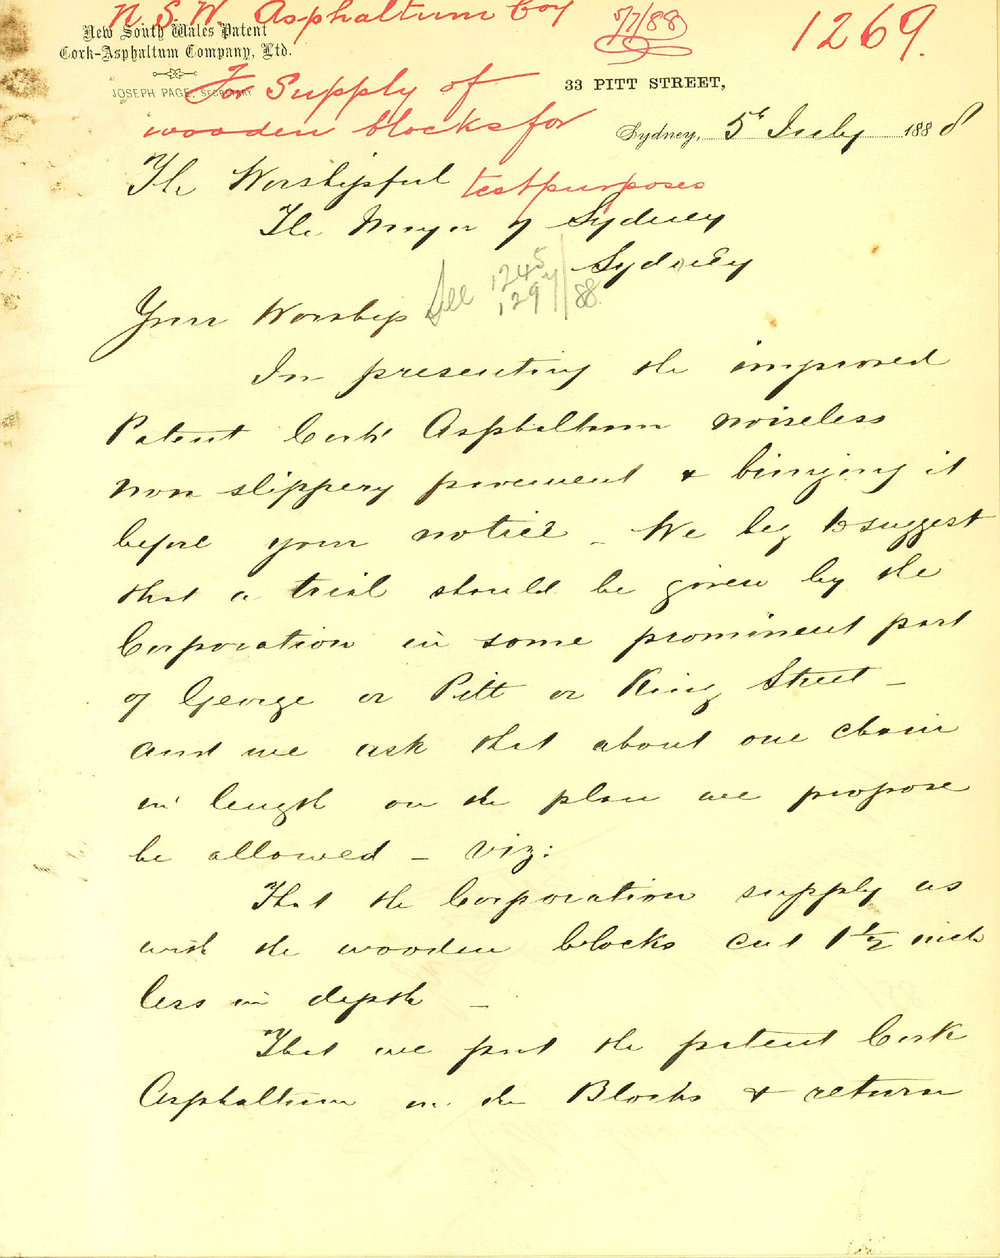 N.S.W. Asphaltum Coy
5/7/88
1269.
New South Wales Patent
Cork-Asphaltum Company, Ltd.
JOSEPH PAGE, SECRETARY
For Supply of
wooden blocks for
test purposes
33 PITT STREET,
Sydney, 5th July 1888
The Worshipful
The Mayor of Sydney
Sydney
See 1245
1297/88
Your Worship
In presenting the improved
Patent Cork Asphaltum noiseless
non slippery pavement & bringing it
before your notice _ We beg to suggest
that a trial should be given by the
Corporation in some prominent part
of George or Pitt or King Street _
and we ask that about one chain
in length on the plan we propose
be allowed _ viz:
That the Corporation supply us
with the wooden blocks cut 1 1/2 inch
less in depth _
That we put the patent Cork
Asphaltum on the Blocks & return